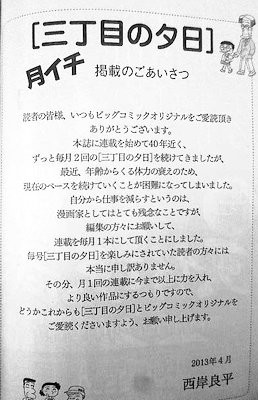 [三丁目の夕日]
月イチ 掲載のごあいさつ
読者の皆様、いつもビッグコミックオリジナルをご愛読頂き
ありがとうございます。
本誌に連載を始めて40年近く、
ずっと毎月2回の[三丁目の夕日]を続けてきましたが、
最近、年齢からくる体力の衰えのため、
現在のペースを続けていくことが困難になってしまいました。
自分から仕事を減らすというのは、
漫画家としてはとても残念なことですが、
編集の方々にお願いして、
連載を毎月1本にして頂くことにしました。
毎号[三丁目の夕日]を楽しみにされていた読者の方々には
本当に申し訳ありません。
その分、月1回の連載に今まで以上に力を入れ、
より良い作品にするつもりですので、
どうかこれからも[三丁目の夕日]とビッグコミックオリジナルを
ご愛読くださいますよう、お願い申し上げます。
2013年4月
西岸良平